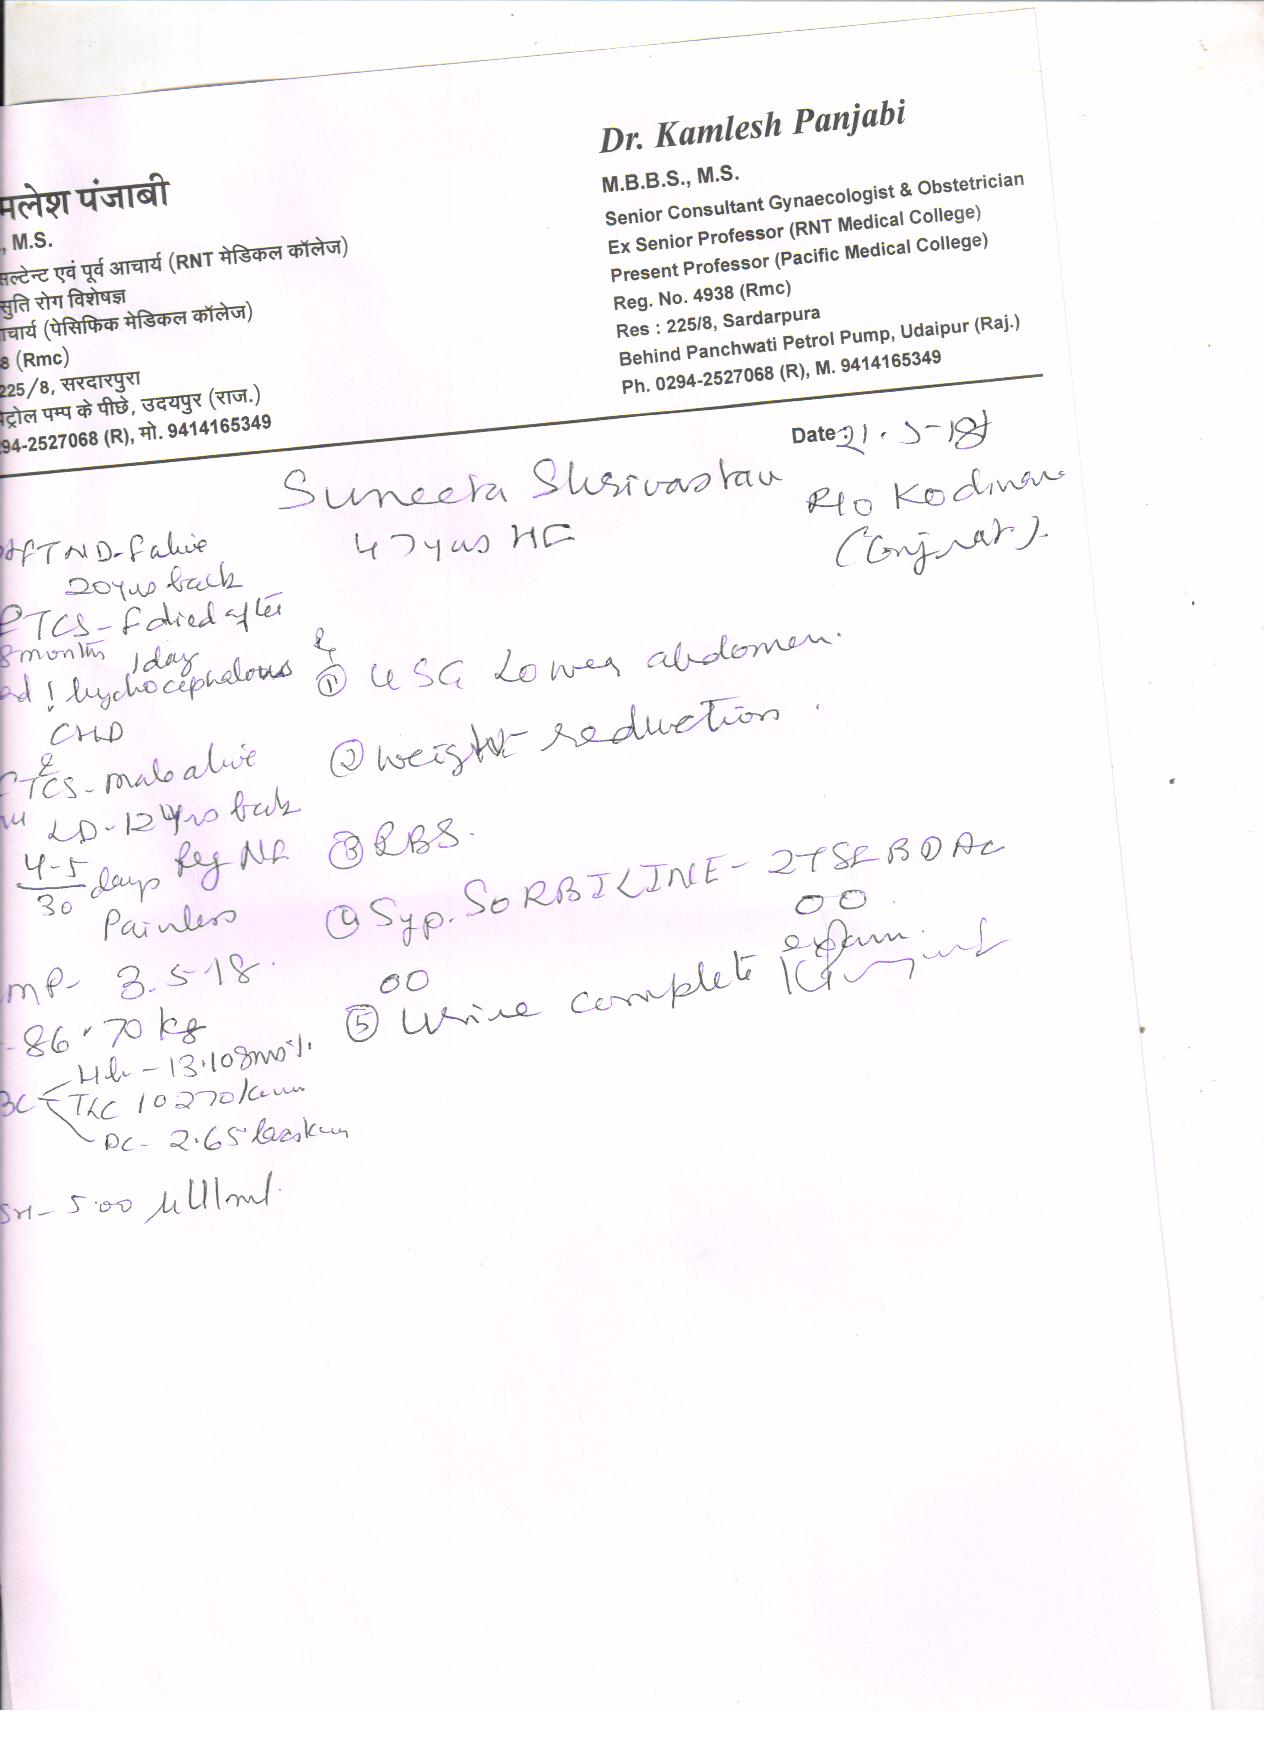 मलेश पंजाबी
, M.S.
सल्टेन्ट एवं पूर्व आचार्य (RNT मेडिकल कॉलेज)
सुति रोग विशेषज्ञ
चार्य (पेसिफिक मेडिकल कॉलेज)
8 (Rmc)
225/8, सरदारपुरा
पेट्रोल पम्प के पीछे, उदयपुर (राज.)
94-2527068 (R), मो. 9414165349
Dr. Kamlesh Panjabi
M.B.B.S., M.S.
Senior Consultant Gynaecologist & Obstetrician
Ex Senior Professor (RNT Medical College)
Present Professor (Pacific Medical College)
Reg. No. 4938 (Rmc)
Res : 225/8, Sardarpura
Behind Panchwati Petrol Pump, Udaipur (Raj.)
Ph. 0294-2527068 (R), M. 9414165349
Date : 21.5-18
Suneeta Shrivastav
47 yrs
R/o Kodinar
(Gujrat).
FTND-F alive
20 yrs back
TCS - F died after
8 months 1 day
! hydrocephalous
CHD
TCS - male alive
LD - 12 yrs back
4-5
30
days Reg
Painless
MP - 3.5-18.
- 86.70 kg
Hb - 13.10
TLC 10270/
2.65
5.00 µIU/ml.
① USG Lower abdomen.
② weight reduction.
③ RBS.
④ Syp. SORBILINE - 2TSF BD AC
⑤ Urine complete exam.